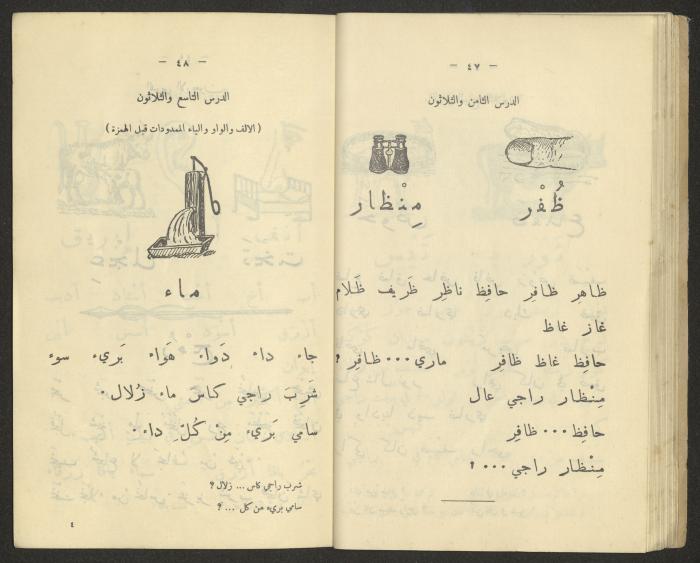 – ٤٧ –
الدرس الثامن والثلاثون
ظُفْر
مِنْظار
ظاهِر ظافِر حافِظ ناظِر ظَريف ظَلام
غاز غاظ
حافِظ غاظ ظافِر ماري... ظافِر ؟
مِنْظار راجي عال
حافِظ... ظافِر
مِنْظار راجي... ؟
– ٤٨ –
الدرس التاسع والثلاثون
( الالف والواو والياء الممدودات قبل الهمزة )
ماء
جاء داء دَواء هَواء بَريء سوء
شَرِبَ راجي كاس ماء زُلال.
سامي بَريء مِنْ كُلّ داء.
شرب راجي كاس ... زلال ؟
سامي بريء من كل ... ؟
٤